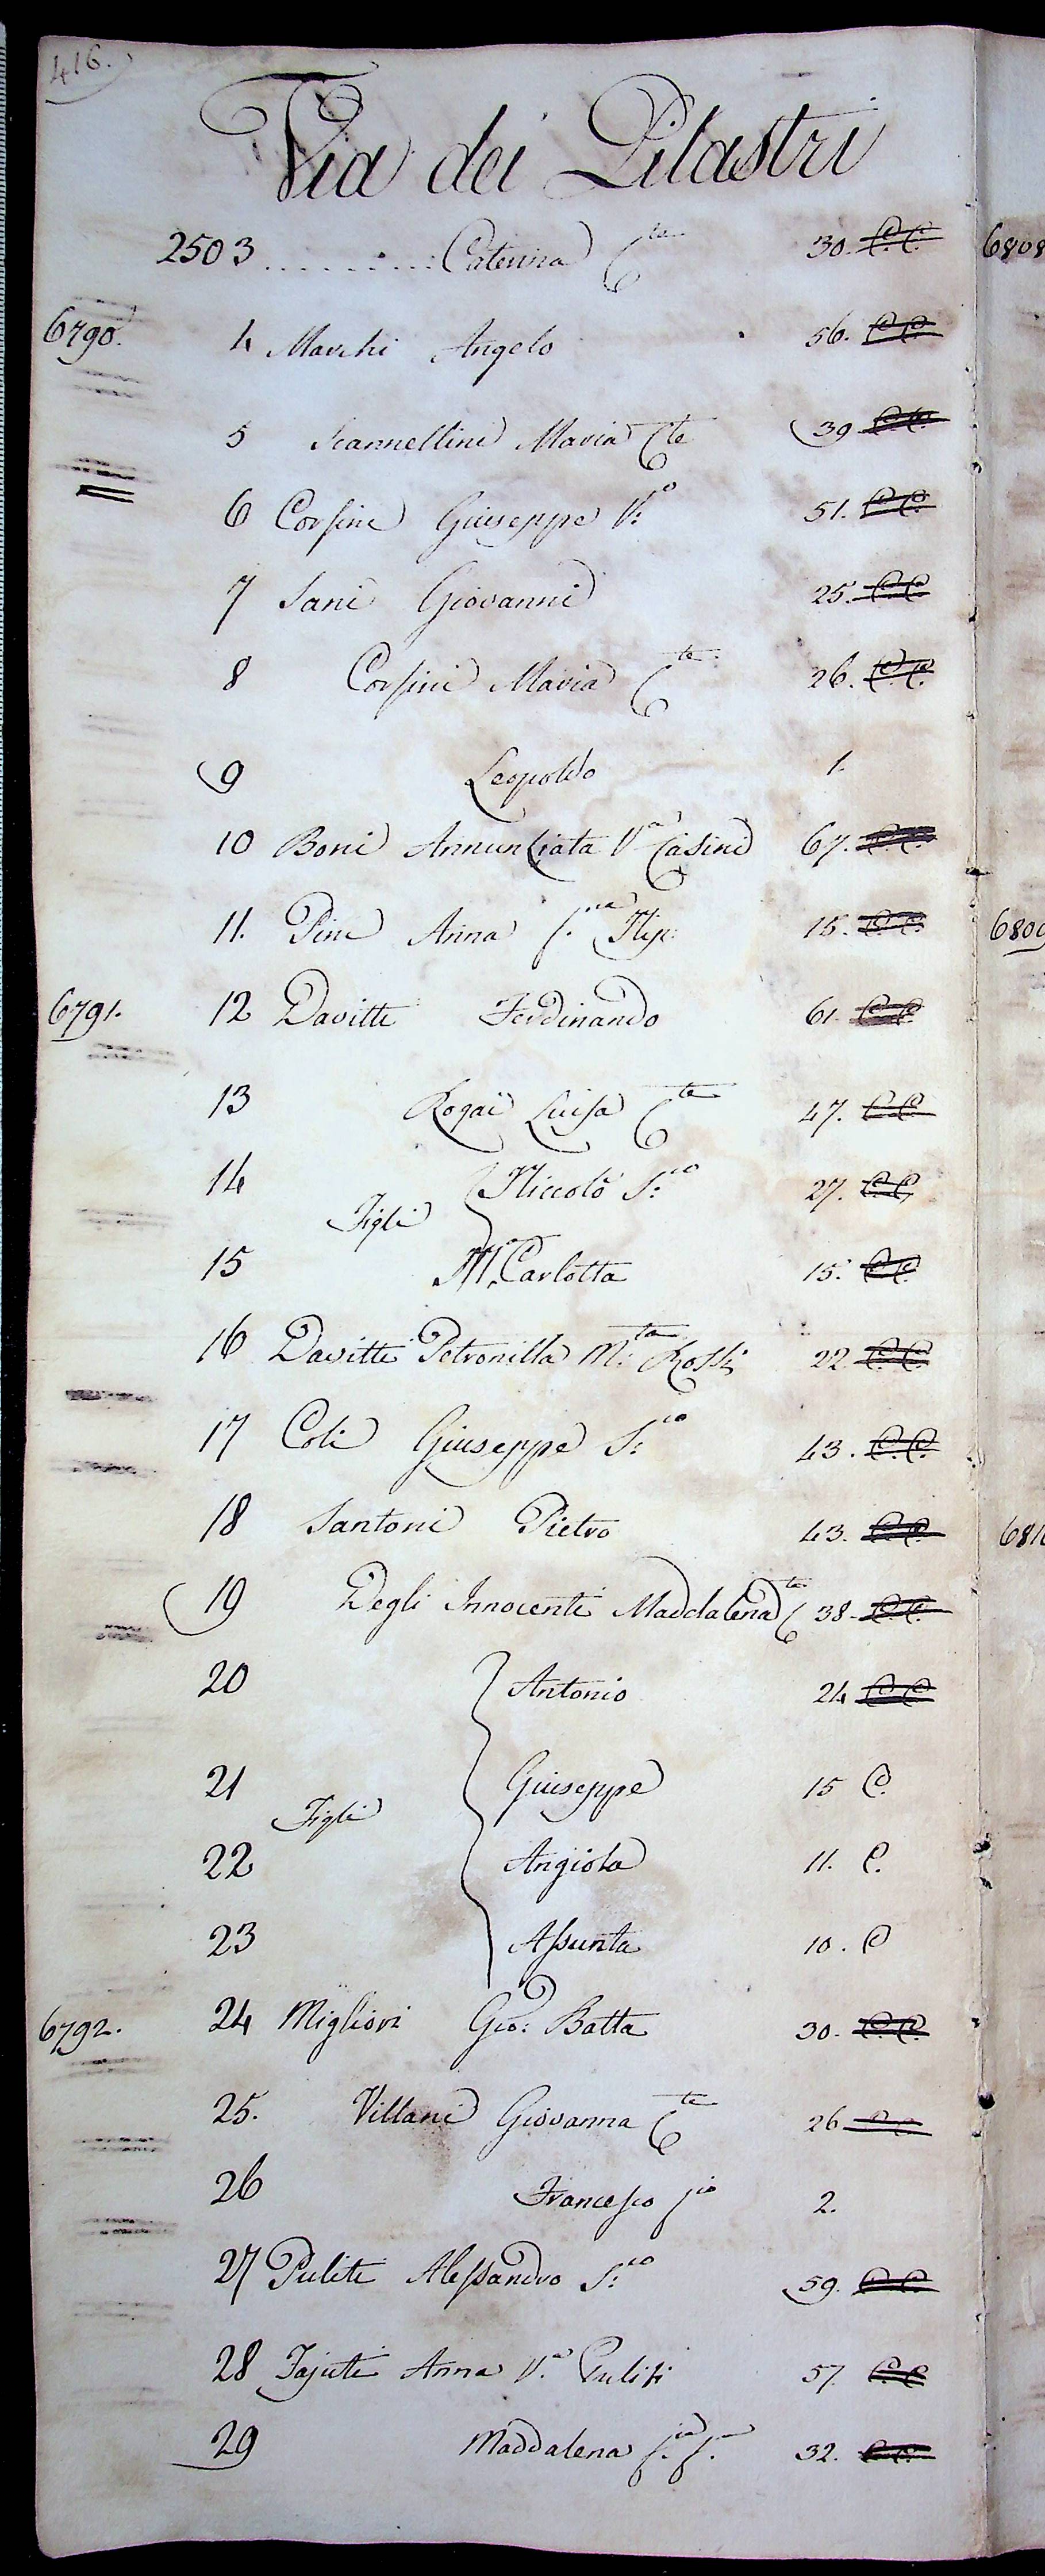 416.
Via dei Pilastri
2503 ......... Caterina C.te 30. C.C. 6808
6790. 4 Marchi Angelo 56. C.C.
5 Scannellini Maria C.te 39 C.C.
6 Corsini Giuseppe V.o 51. C.C.
7 Sani Giovanni 25. C.C.
8 Corsini Maria C.te 26. C.C.
9 Leopoldo 1.
10 Boni Annunziata V.a Casini 67. C.C.
11. Pini Anna 15. C.C. 6809
6791. 12 Davitti Ferdinando 61. C.C.
13 Rogai Luisa C.te 47. C.C.
14 Niccolò S.io 27. C.C.
Figli
15 M. Carlotta 15. C.C.
16 Davitti Petronilla M.ta Rossi 22. C.C.
17 Coli Giuseppe S.io 43. C.C.
18 Santoni Pietro 43. C.C. 681
19 Degli Innocenti Maddalena C.te 38 C.C.
20 Antonio 24 C.C.
21 Giuseppe 15 C.
Figli
22 Angiola 11. C.
23 Assunta 10. C
6792. 24 Migliori Gio: Batta 30. C.C.
25. Villani Giovanna C.te 26 C.C.
26 Francesco f.io 2.
27 Puliti Alessandro S.io 59. C.C.
28 Anna V.a Puliti 57. C.C.
29 Maddalena 32. C.C.